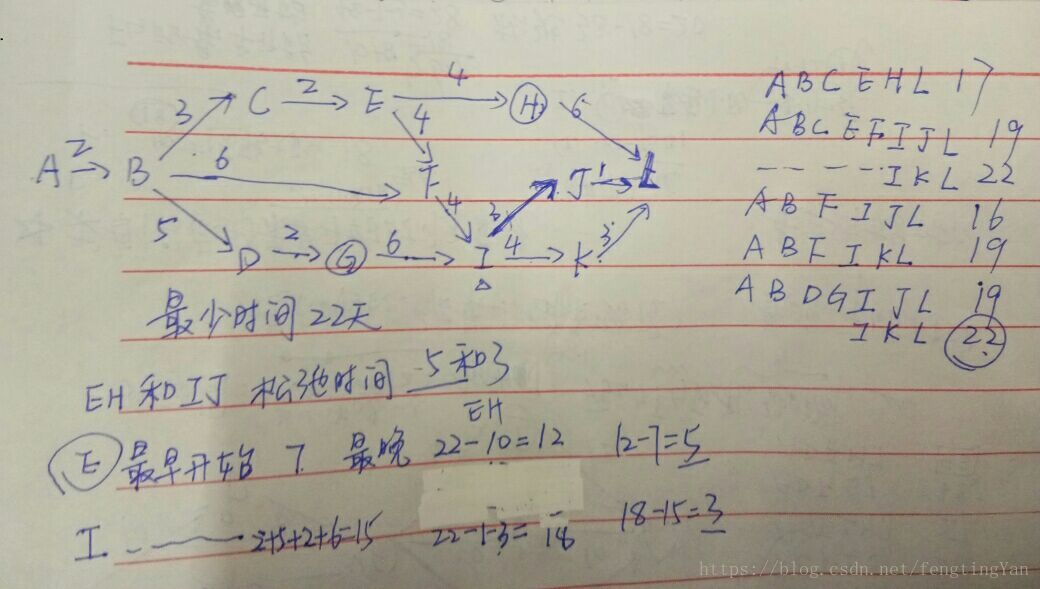 3 C 2 E 4 H 6
A 2 B 6 4 F J 1 L
5 D 2 G 6 4 I 3 4 K 3
A B C E H L 17
A B C E F I J L 19
- - - - - I K L 22
A B F I J L 16
A B F I K L 19
A B D G I J L 19
I K L 22
最少时间22天
EH和IJ 松弛时间 5和3
EH
E 最早开始 7 最晚 22-10=12 12-7=5
I 2+5+2+6=15 22-1-3=18 18-15=3
https://blog.csdn.net/fengtingYan